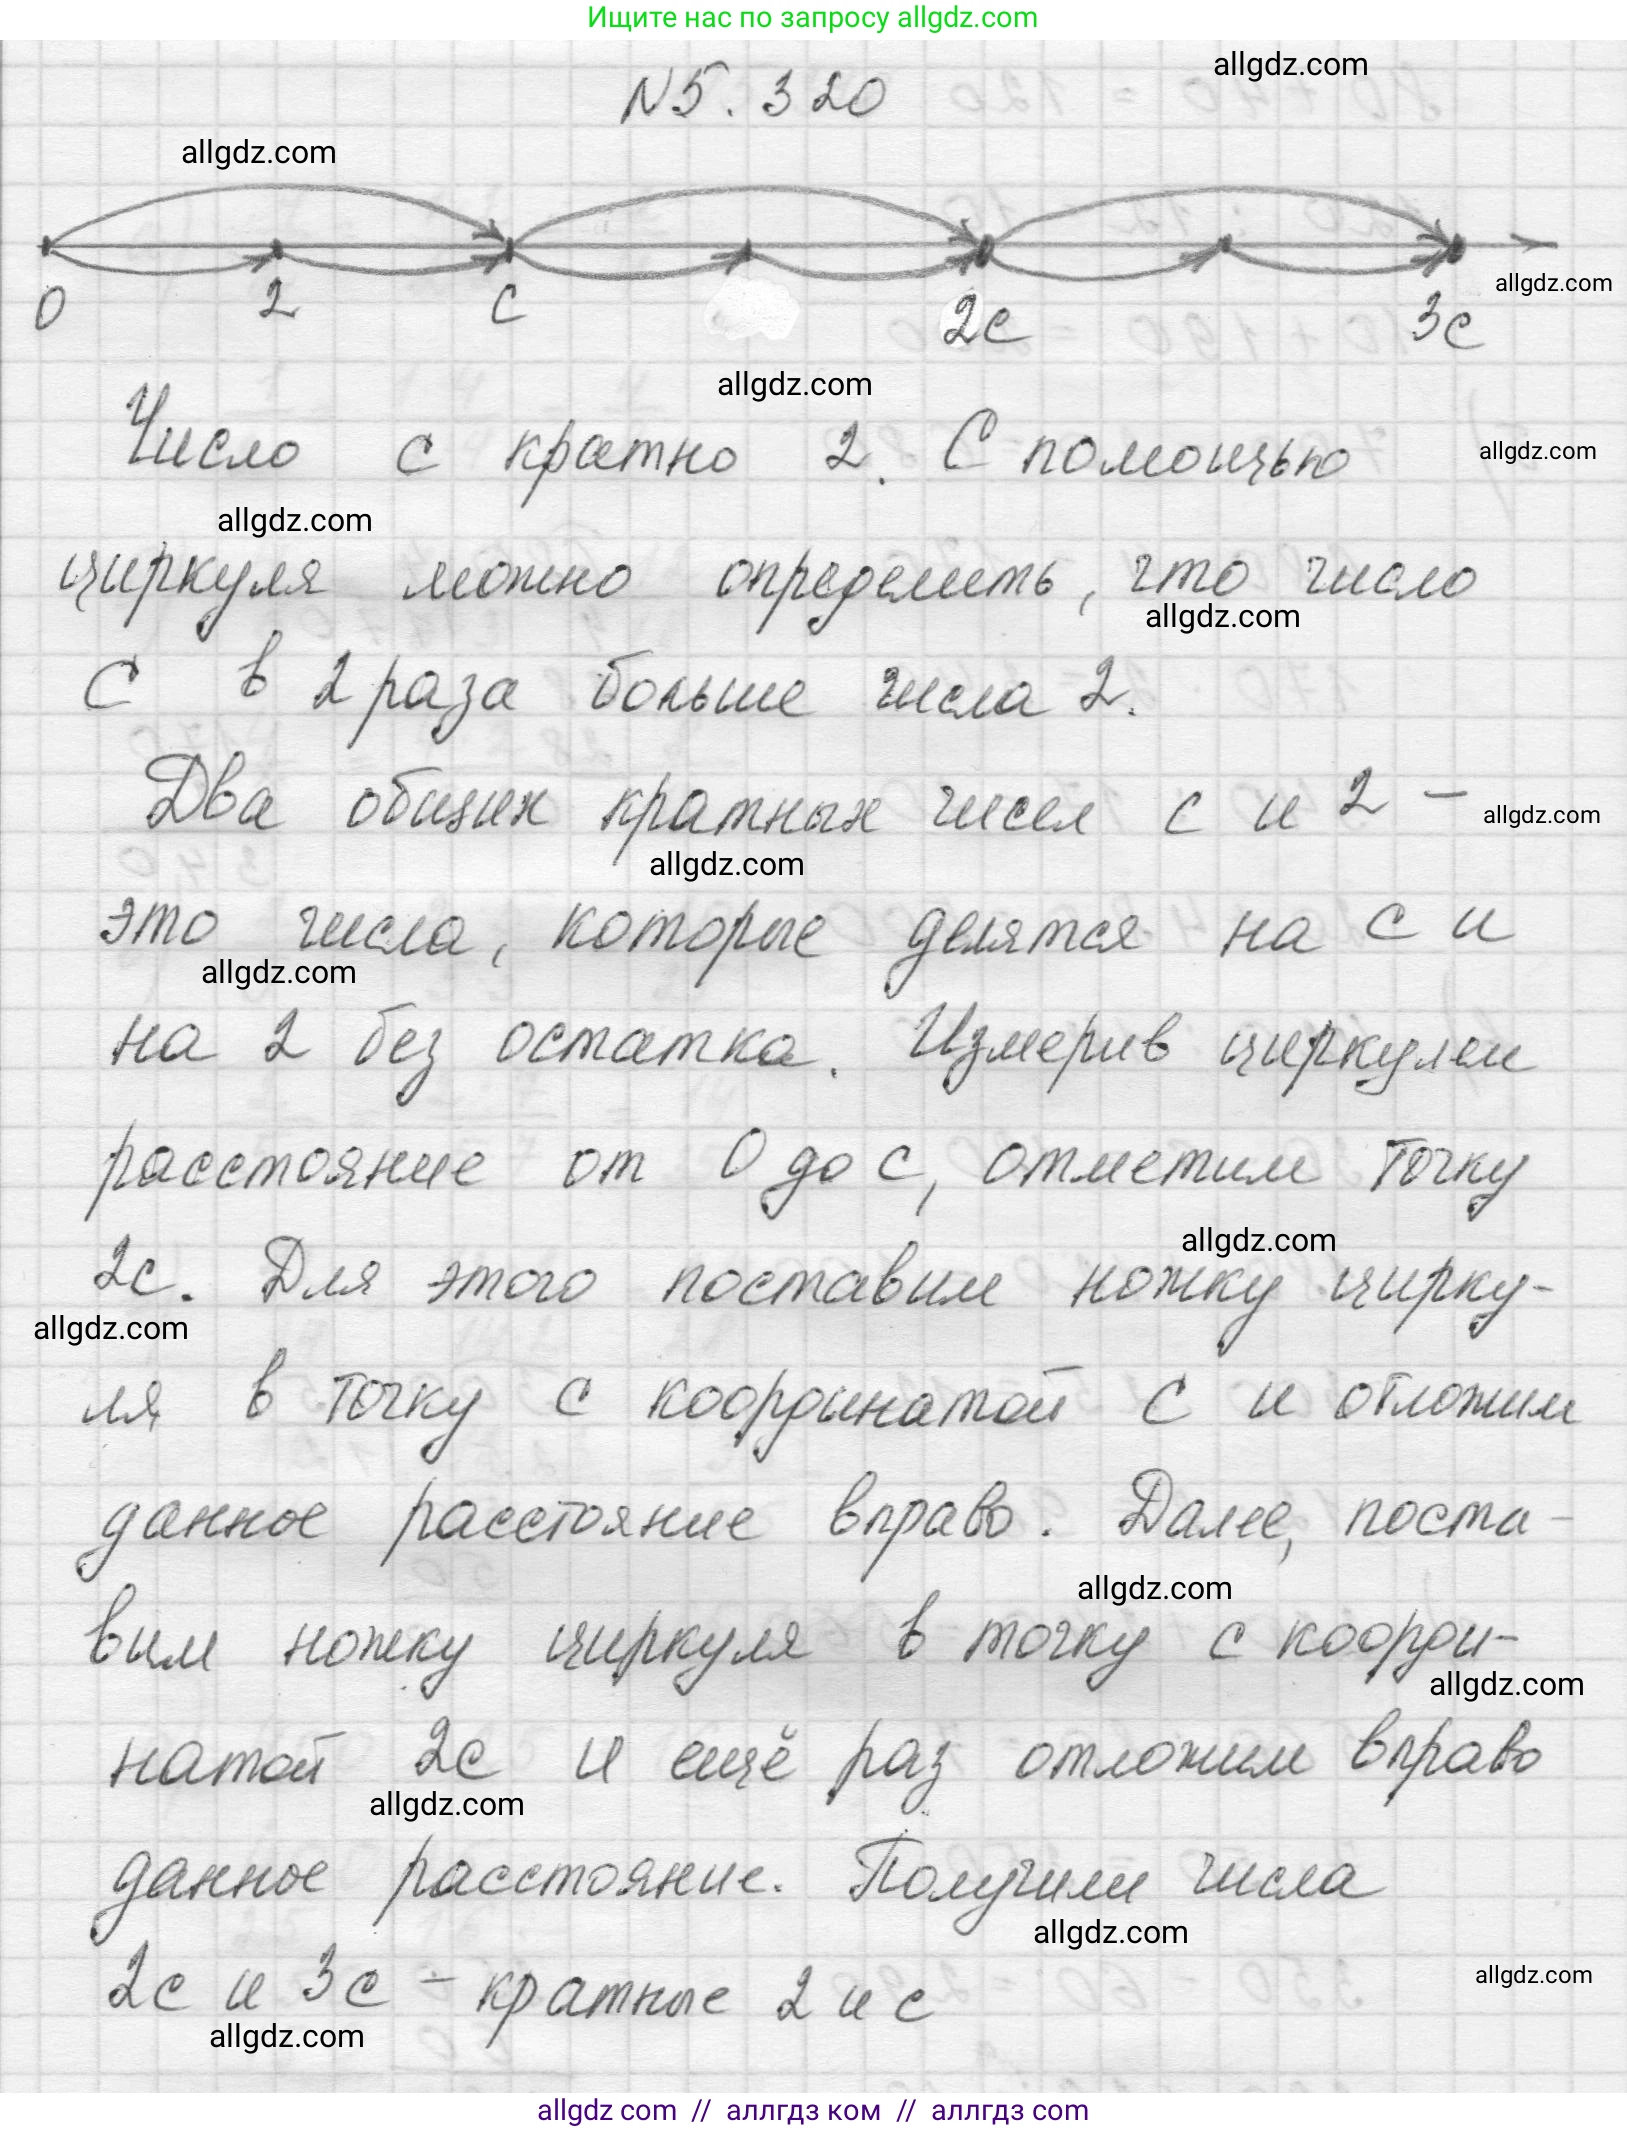 Ищите нас по запросу allgdz.com
allgdz.com
N5. 320
allgdz.com
allgdz.com
0 2 c 2c 3c
allgdz.com
Число c кратно 2. С помощью
allgdz.com
allgdz.com
циркуля можно определить, что число
allgdz.com
с в 2 раза больше числа 2.
Два общих кратных чисел с и 2 –
allgdz.com
allgdz.com
это числа, которые делятся на с и
allgdz.com
на 2 без остатка. Измерив циркулем
расстояние от 0 до с, отметим точку
allgdz.com
2с. Для этого поставим ножку цирку-
allgdz.com
ля в точку с координатой с и отложим
данное расстояние вправо. Далее, поста-
allgdz.com
вим ножку циркуля в точку с коорди-
allgdz.com
натой 2с и ещё раз отложим вправо
allgdz.com
данное расстояние. Получили числа
allgdz.com
2с и 3с – кратные 2 и с
allgdz.com
allgdz.com
allgdz com // аллгдз ком // аллгдз com